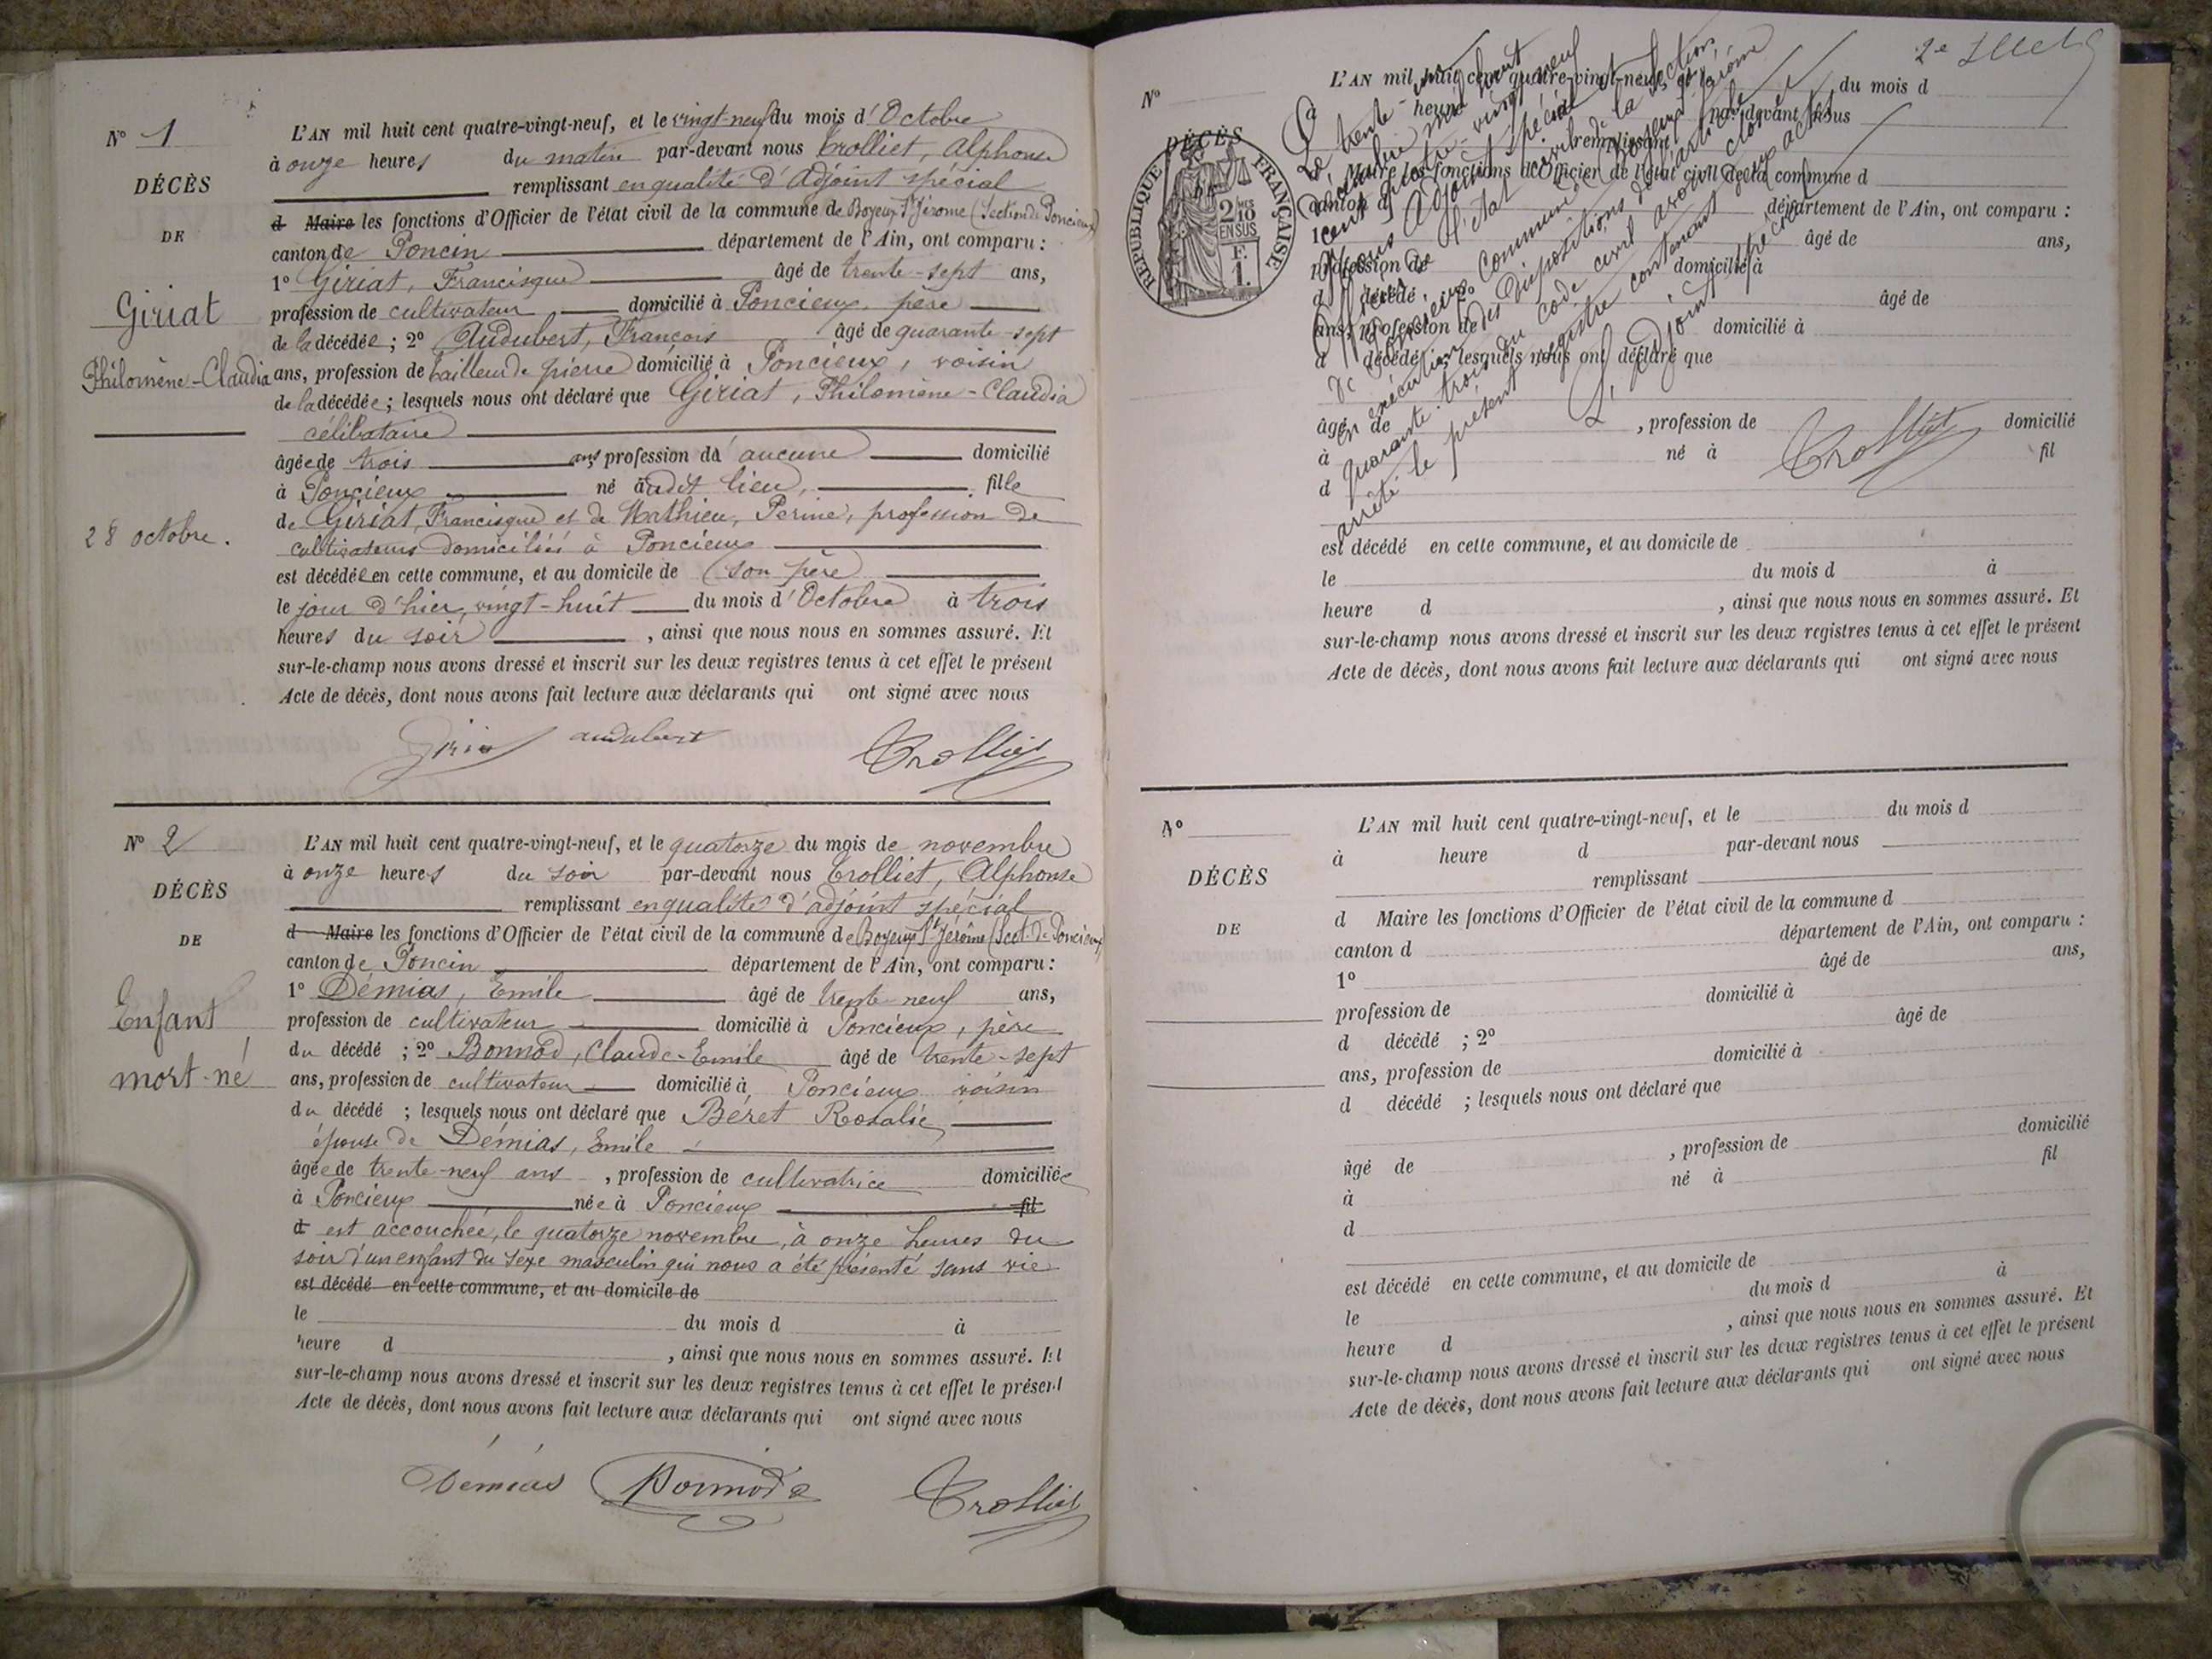 N° 1
DÉCÈS
DE
Giriat
Philomène-Claudia
28 octobre.
L'AN mil huit cent quatre-vingt-neuf, et le vingt-neuf du mois d'Octobre
à onze heures du matin par-devant nous Trolliet, Alphonse
remplissant en qualité d'Adjoint spécial
d Maire les fonctions d'Officier de l'état civil de la commune de Boyeux St Jérome (Section de Poncieux)
canton de Poncin département de l'Ain, ont comparu :
1° Giriat, Francisque âgé de trente-sept ans,
profession de cultivateur domicilié à Poncieux, père
de la décédée ; 2° Audubert, François âgé de quarante-sept
ans, profession de tailleur de pierre domicilié à Poncieux, voisin
de la décédée ; lesquels nous ont déclaré que Giriat, Philomène-Claudia
célibataire
âgée de trois ans profession d'aucune domicilié
à Poncieux né audit lieu, fille
de Giriat, Francisque et de Mathieu, Perine, profession de
cultivateurs domiciliés à Poncieux
est décédée en cette commune, et au domicile de son père
le jour d'hier, vingt-huit du mois d'Octobre à trois
heures du soir , ainsi que nous nous en sommes assuré. Et
sur-le-champ nous avons dressé et inscrit sur les deux registres tenus à cet effet le présent
Acte de décès, dont nous avons fait lecture aux déclarants qui ont signé avec nous
audubert Trolliet
N° 2
DÉCÈS
DE
Enfant
mort-né
L'AN mil huit cent quatre-vingt-neuf, et le quatorze du mois de novembre
à onze heures du soir par-devant nous Trolliet, Alphonse
remplissant en qualité d'adjoint spécial
d Maire les fonctions d'Officier de l'état civil de la commune de Boyeux St Jérôme (Sect. de Poncieux)
canton de Poncin département de l'Ain, ont comparu :
1° Démias, Emile âgé de trente neuf ans,
profession de cultivateur domicilié à Poncieux, père
du décédé ; 2° Bonnod, Claude-Emile âgé de trente-sept
ans, profession de cultivateur domicilié à Poncieux voisin
du décédé ; lesquels nous ont déclaré que Béret Rosalie,
épouse de Démias, Emile
âgée de trente-neuf ans , profession de cultivatrice domiciliée
à Poncieux née à Poncieux fil
d est accouchée, le quatorze novembre, à onze heures du
soir d'un enfant du sexe masculin qui nous a été présenté sans vie
est décédé en cette commune, et au domicile de
le du mois d à
heure d , ainsi que nous nous en sommes assuré. Et
sur-le-champ nous avons dressé et inscrit sur les deux registres tenus à cet effet le présent
Acte de décès, dont nous avons fait lecture aux déclarants qui ont signé avec nous
Démias Bonnod Trolliet
2e
N°
DÉCÈS
RÉPUBLIQUE FRANÇAISE
2 MES
10
EN SUS
F.
1.
L'AN mil huit cent quatre-vingt-neuf, et le du mois d
à heure par-devant nous
remplissant
Maire les fonctions d'Officier de l'état civil de la commune d
canton d département de l'Ain, ont comparu :
1° âgé de ans,
profession de domicilié à
d décédé ; 2° âgé de
ans, profession de domicilié à
d décédé ; lesquels nous ont déclaré que
âgé de , profession de domicilié
à né à fil
d
Le trente-un
décembre mil huit
cent quatre-vingt neuf
Nous Adjoint spécial et
Officier de l'état civil de la section
de Poncieux commune de Boyeux St Jérôme
en exécution des dispositions de l'article
quarante-trois du code civil avons clos et
arrêté le présent registre contenant deux actes
L'Adjoint spécial
Trolliet
est décédé en cette commune, et au domicile de
le du mois d à
heure d , ainsi que nous nous en sommes assuré. Et
sur-le-champ nous avons dressé et inscrit sur les deux registres tenus à cet effet le présent
Acte de décès, dont nous avons fait lecture aux déclarants qui ont signé avec nous
N°
DÉCÈS
DE
L'AN mil huit cent quatre-vingt-neuf, et le du mois d
à heure d par-devant nous
remplissant
d Maire les fonctions d'Officier de l'état civil de la commune d
canton d département de l'Ain, ont comparu :
1° âgé de ans,
profession de domicilié à
d décédé ; 2° âgé de
ans, profession de domicilié à
d décédé ; lesquels nous ont déclaré que
âgé de , profession de domicilié
à né à fil
d
est décédé en cette commune, et au domicile de
le du mois d à
heure d , ainsi que nous nous en sommes assuré. Et
sur-le-champ nous avons dressé et inscrit sur les deux registres tenus à cet effet le présent
Acte de décès, dont nous avons fait lecture aux déclarants qui ont signé avec nous